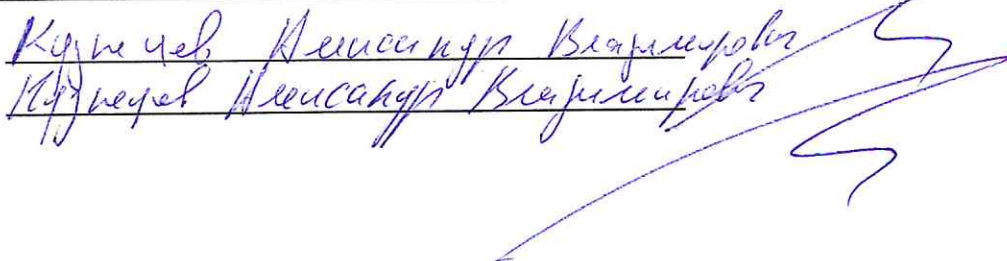 Кузнецов Александр Владимирович
Кузнецов Александр Владимирович